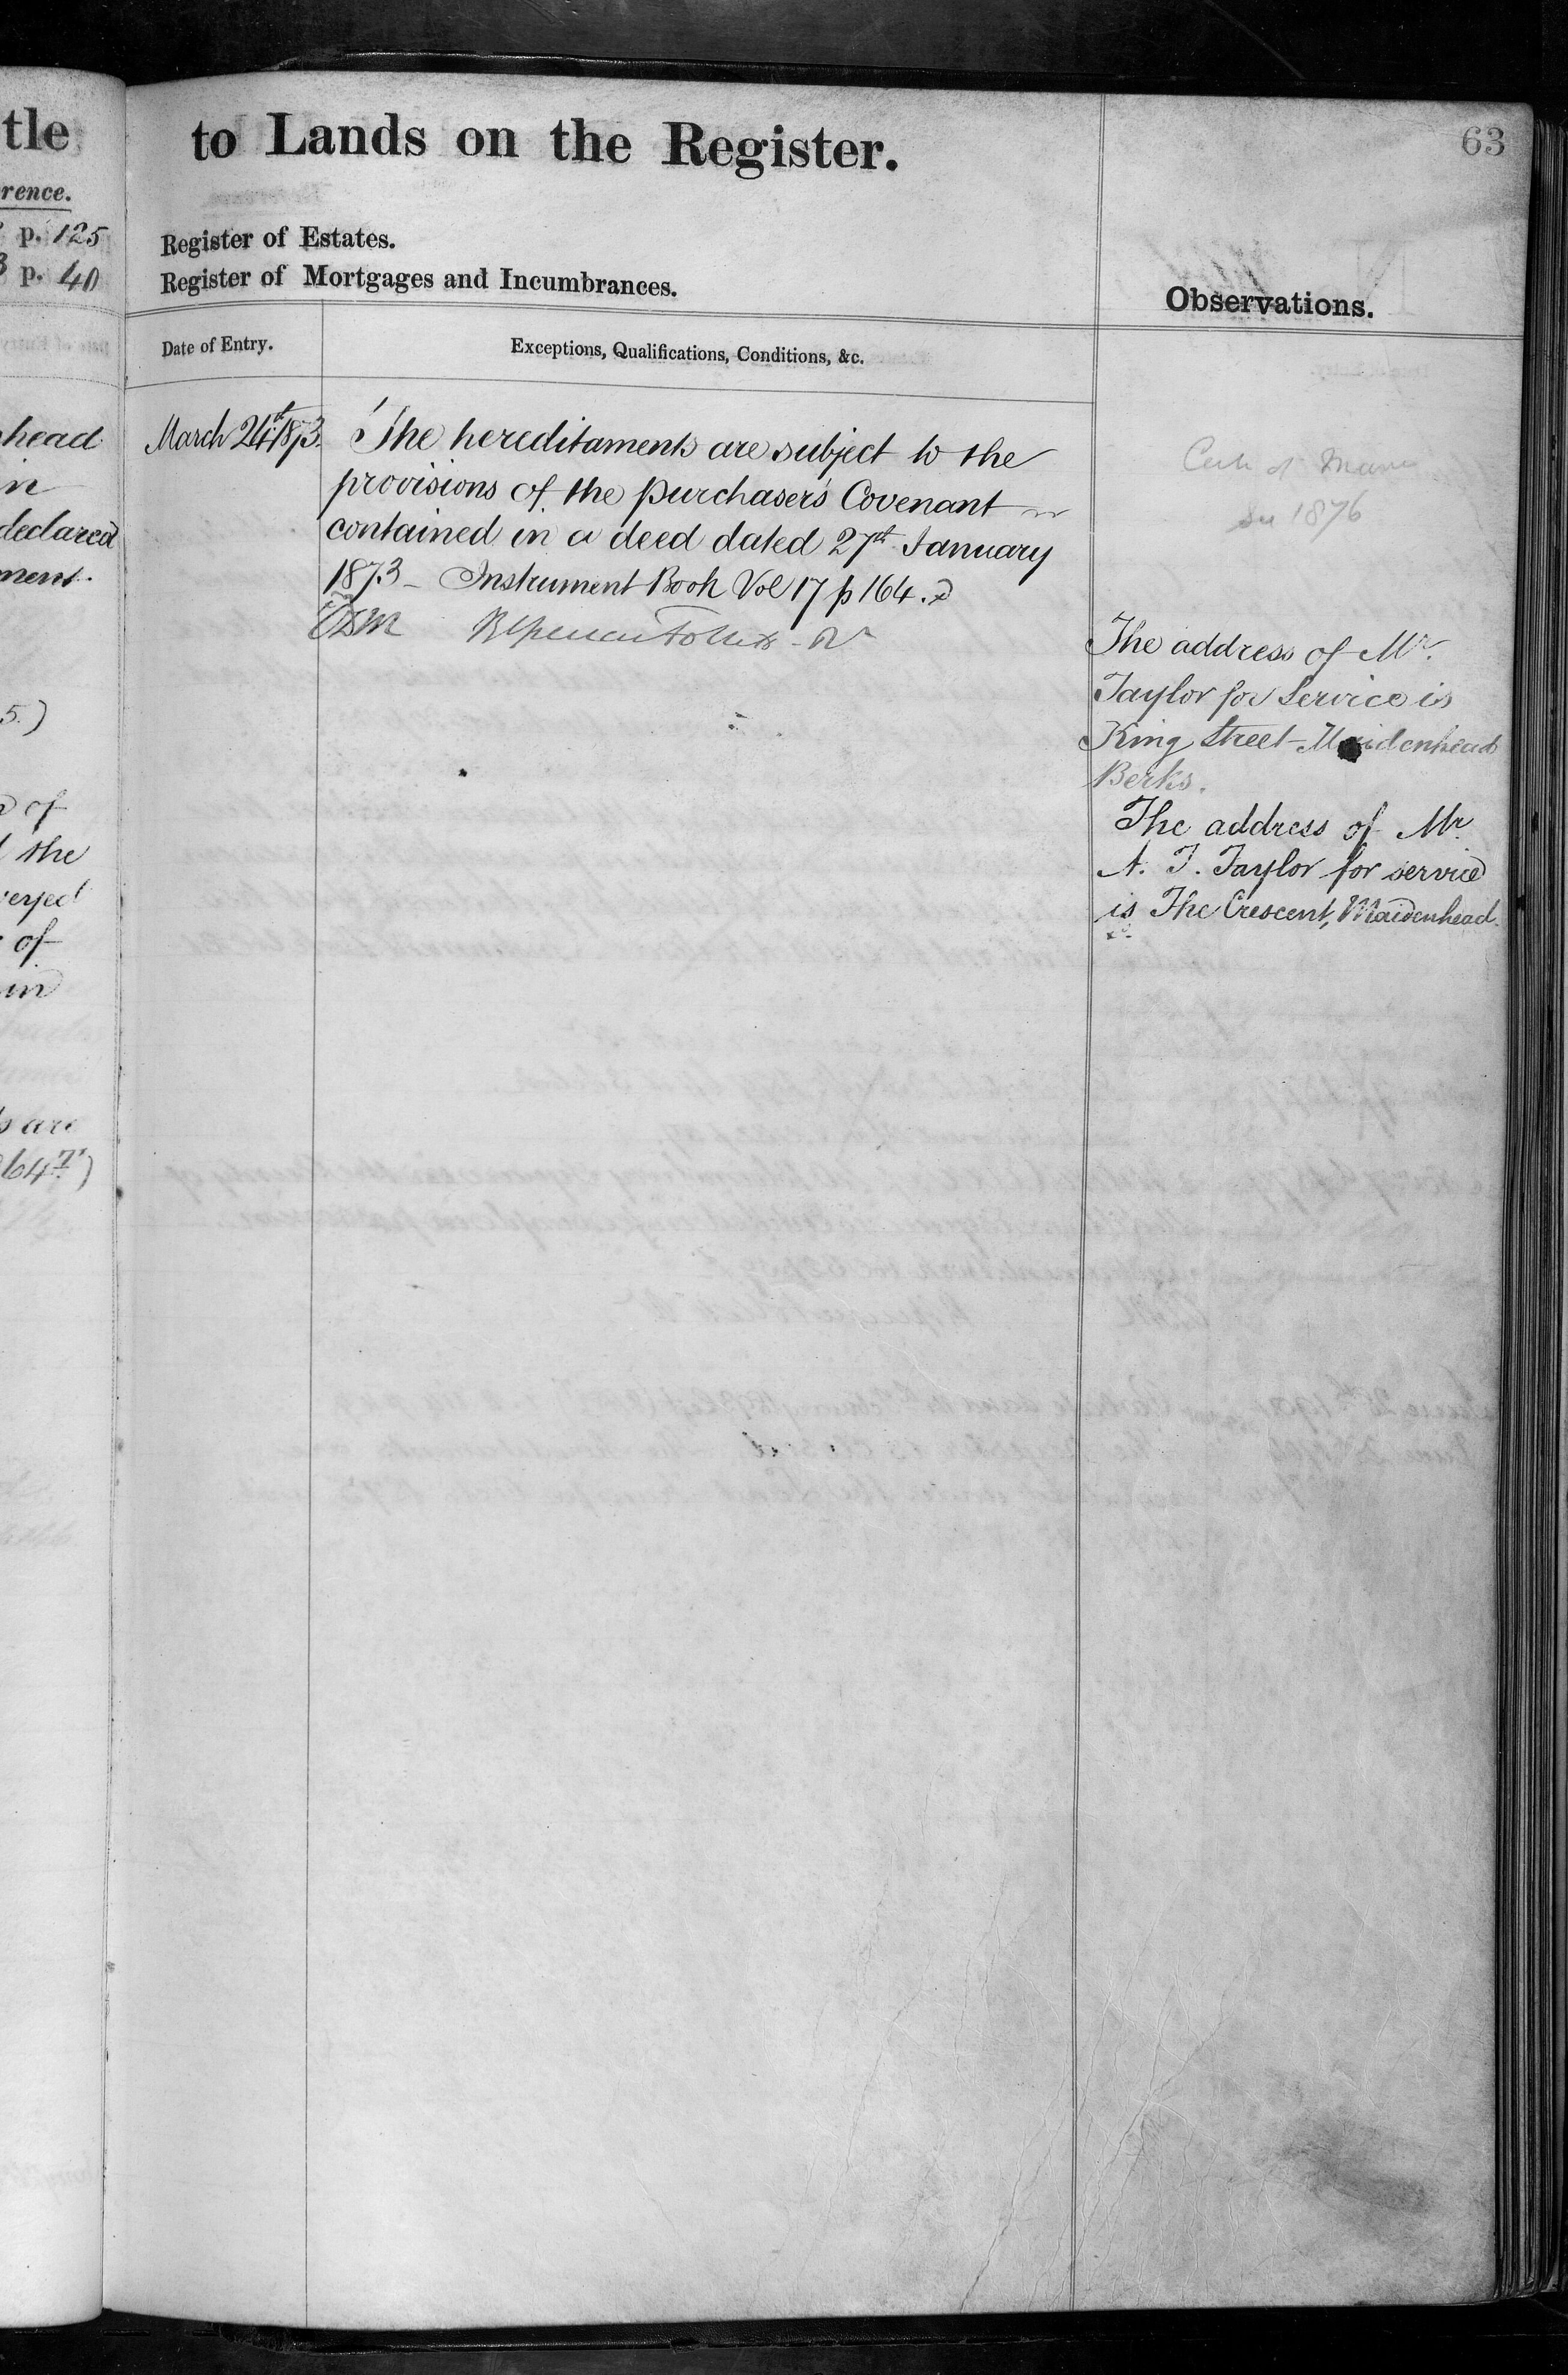 tle
rence.
p. 125
p. 40
head
in
declared
ment.
5.)
of
the
of
in
are
647)
to Lands on the Register.
63
Register of Estates.
Register of Mortgages and Incumbrances.
Observations.
Date of Entry.
Exceptions, Qualifications, Conditions, &c.
March 24th 1873.
The hereditaments are subject to the
provisions of the purchaser's Covenant
contained in a deed dated 27th January
1873 - Instrument Book Vol 17 p 164.
1876
The address of Mr.
Taylor for Service is
King Street Maidenhead
Berks.
The address of Mr.
A. T. Taylor for service
is The Crescent, Maidenhead.